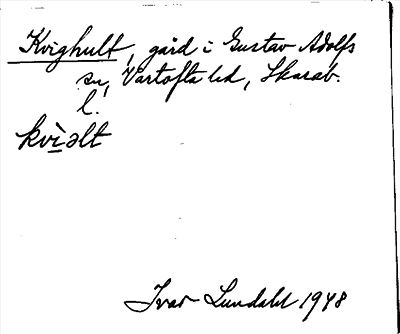 Kvighult, gård i Gustav Adolfs
sn, Vartofta hd, Skarab.
l.
kvìəlt
Ivar Lundahl 1948